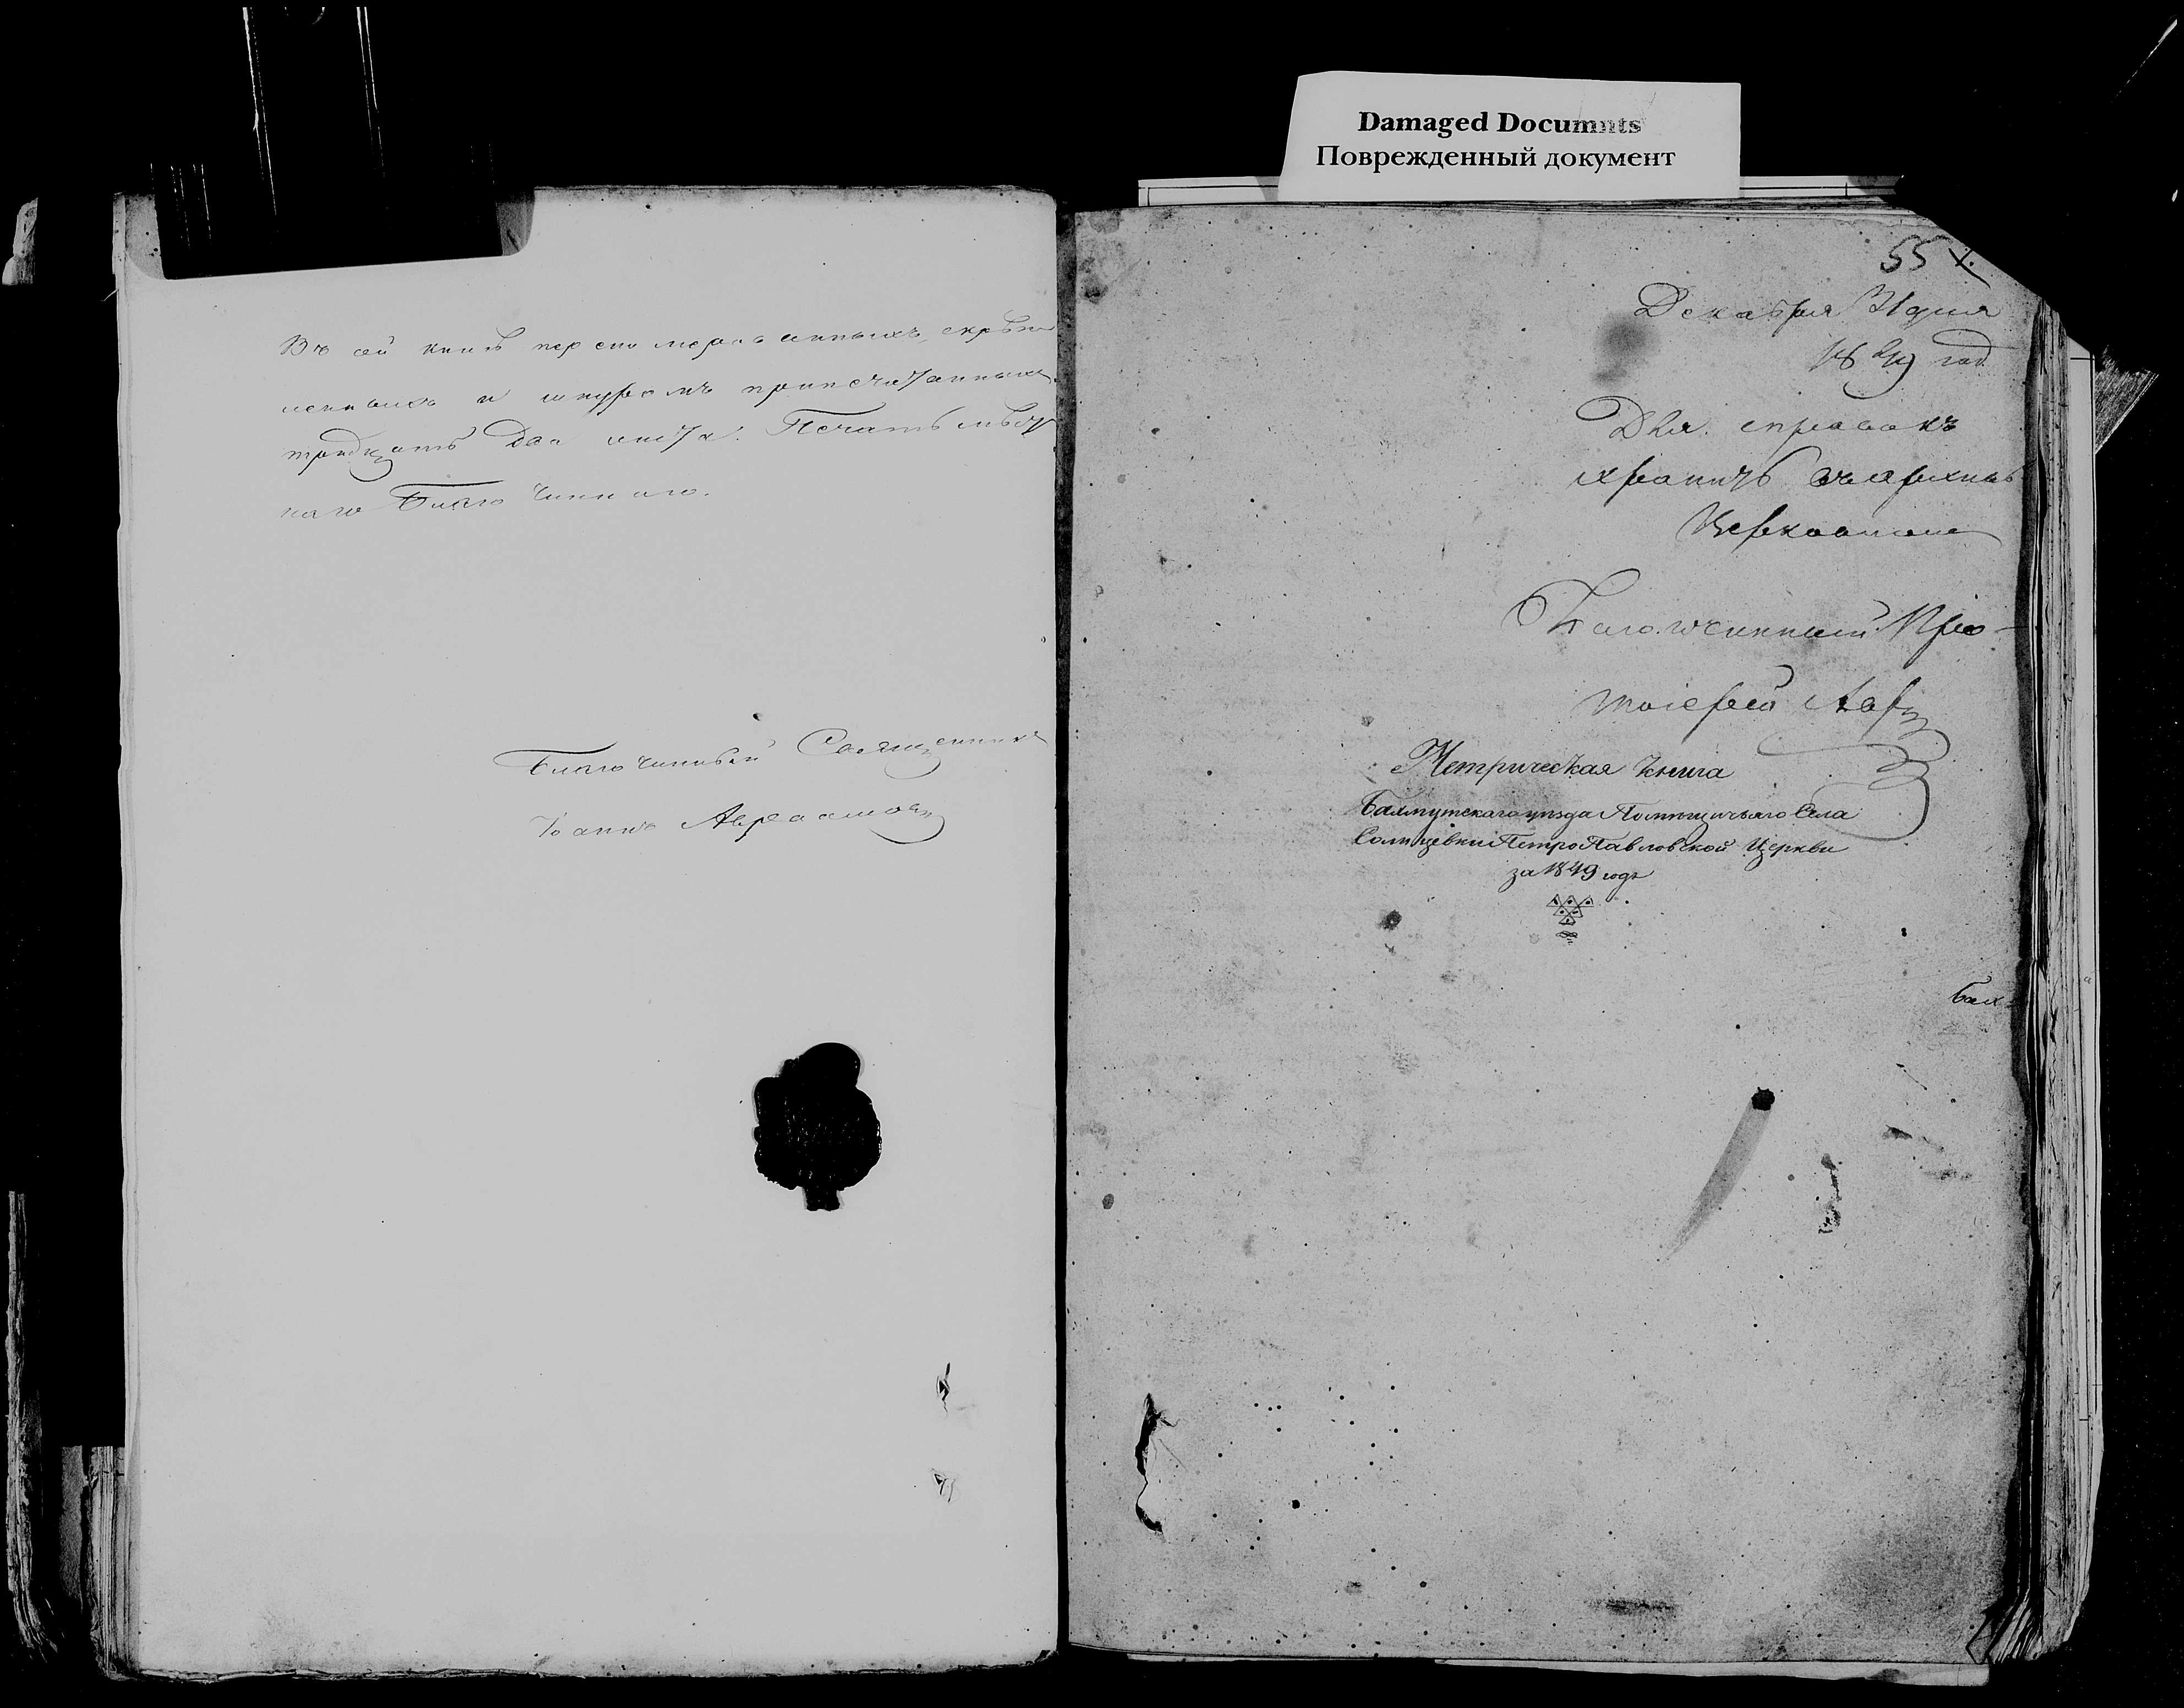 Damaged Documnts
Поврежденный документ
Въ сей книгѣ перенумерованныхъ, скрѣп-
ленныхъ и шнуромъ припечатанныхъ
тридцать два листа. Печать мѣст
наго Благочиннаго.
Благочинный Священникъ
Іоаннъ Авраамовъ
55
Декабря 31 дня
1849 год
Для справокъ
хранить въ архивѣ
Церковномъ
Благочинный Про-
тоіерей
Метрическая книга
Бахмутскаго уѣзда Помѣщичьяго Села
Солнцевки Петро Павловской Церкви
за 1849 годъ
Бах